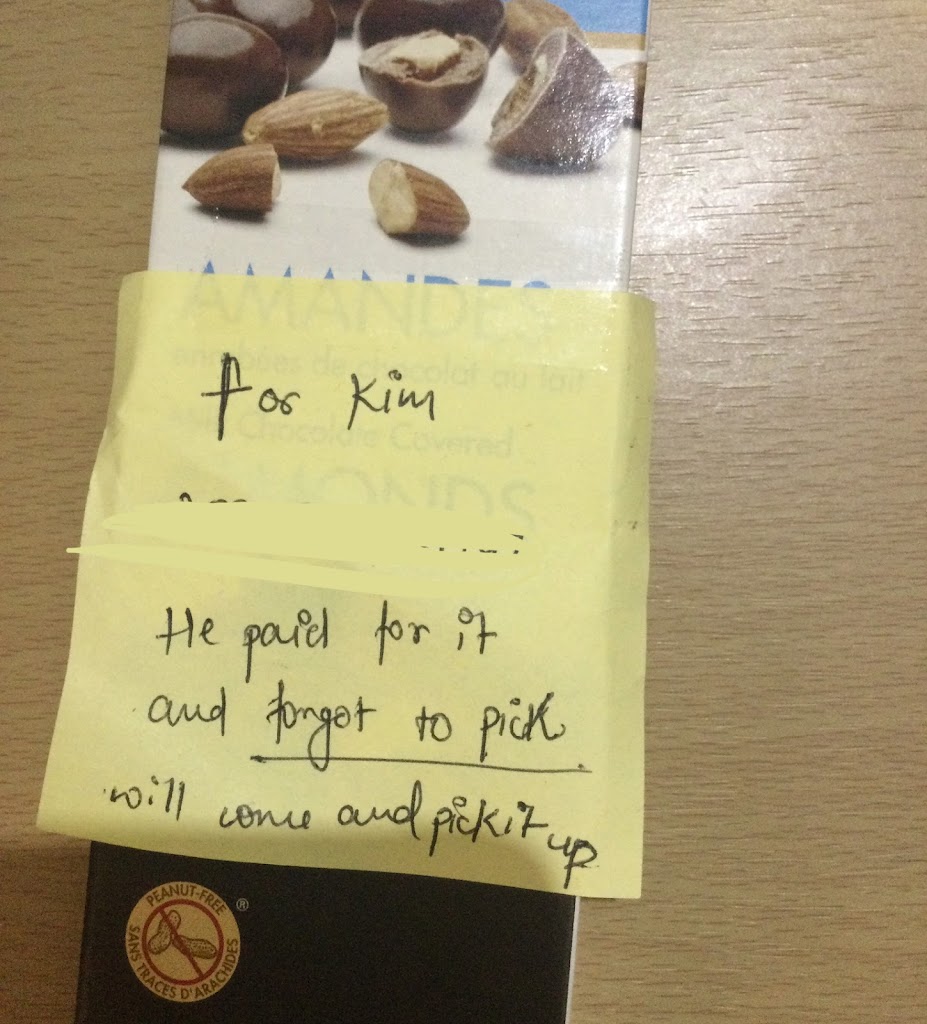 AMANDES
enrobées de chocolat au lait
Milk Chocolate Covered
for Kim
He paid for it
and forgot to pick
will come and pick it up
PEANUT-FREE
®
SANS TRACES D'ARACHIDES